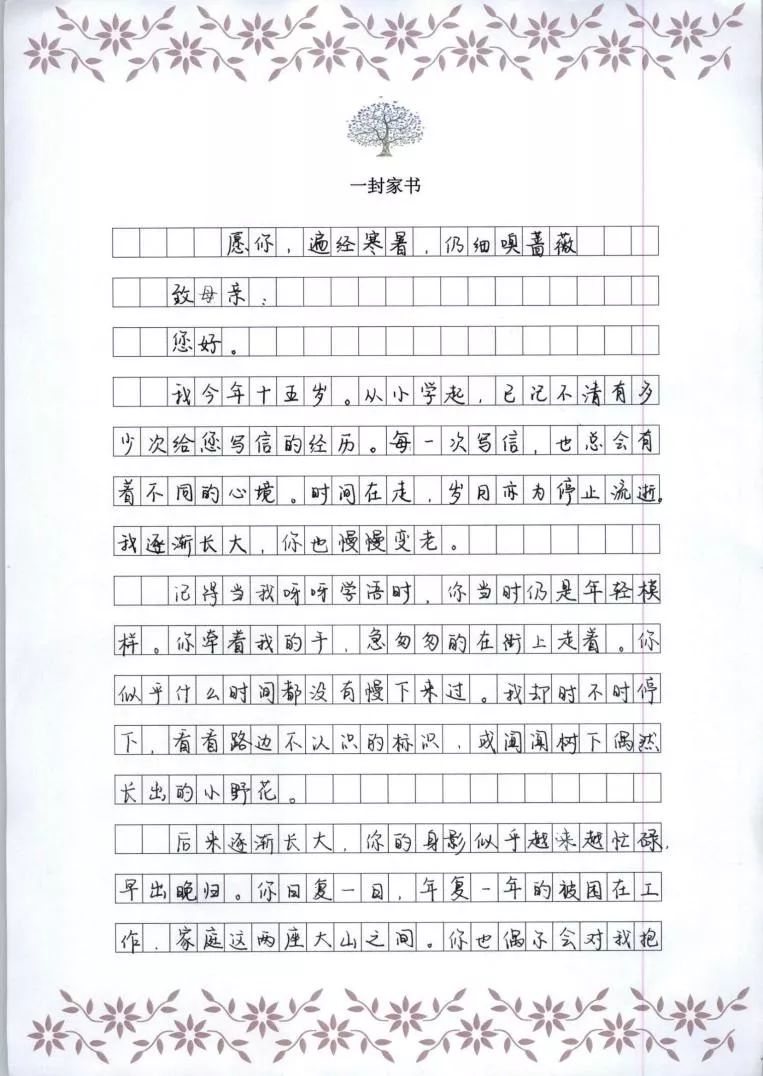 一封家书
愿你，遍经寒暑，仍细嗅蔷薇
致母亲：
您好。
我今年十五岁。从小学起，已记不清有多
少次给您写信的经历。每一次写信，也总会有
着不同的心境。时间在走，岁月亦为停止流逝。
我逐渐长大，你也慢慢变老。
记得当我呀呀学语时，你当时仍是年轻模
样。你牵着我的手，急匆匆的在街上走着。你
似乎什么时间都没有慢下来过。我却时不时停
下，看看路边不认识的标识，或闻闻树下偶然
长出的小野花。
后来逐渐长大，你的身影似乎越来越忙碌，
早出晚归。你日复一日，年复一年的被困在工
作，家庭这两座大山之间。你也偶尔会对我抱